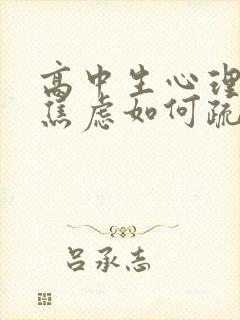 高中生心理
焦虑如何疏
吕承志